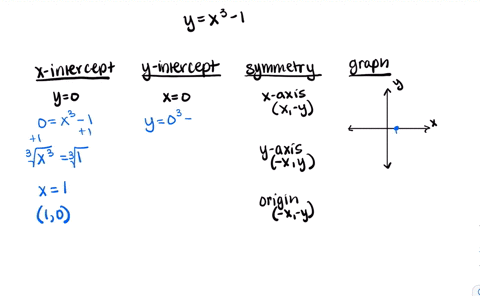 y = x³ - 1
x-intercept
y = 0
0 = x³ - 1
+1 +1
∛x³ = ∛1
x = 1
(1, 0)
y-intercept
x = 0
y = 0³ -
symmetry
x-axis
(x, -y)
y-axis
(-x, y)
origin
(-x, -y)
graph
y
x